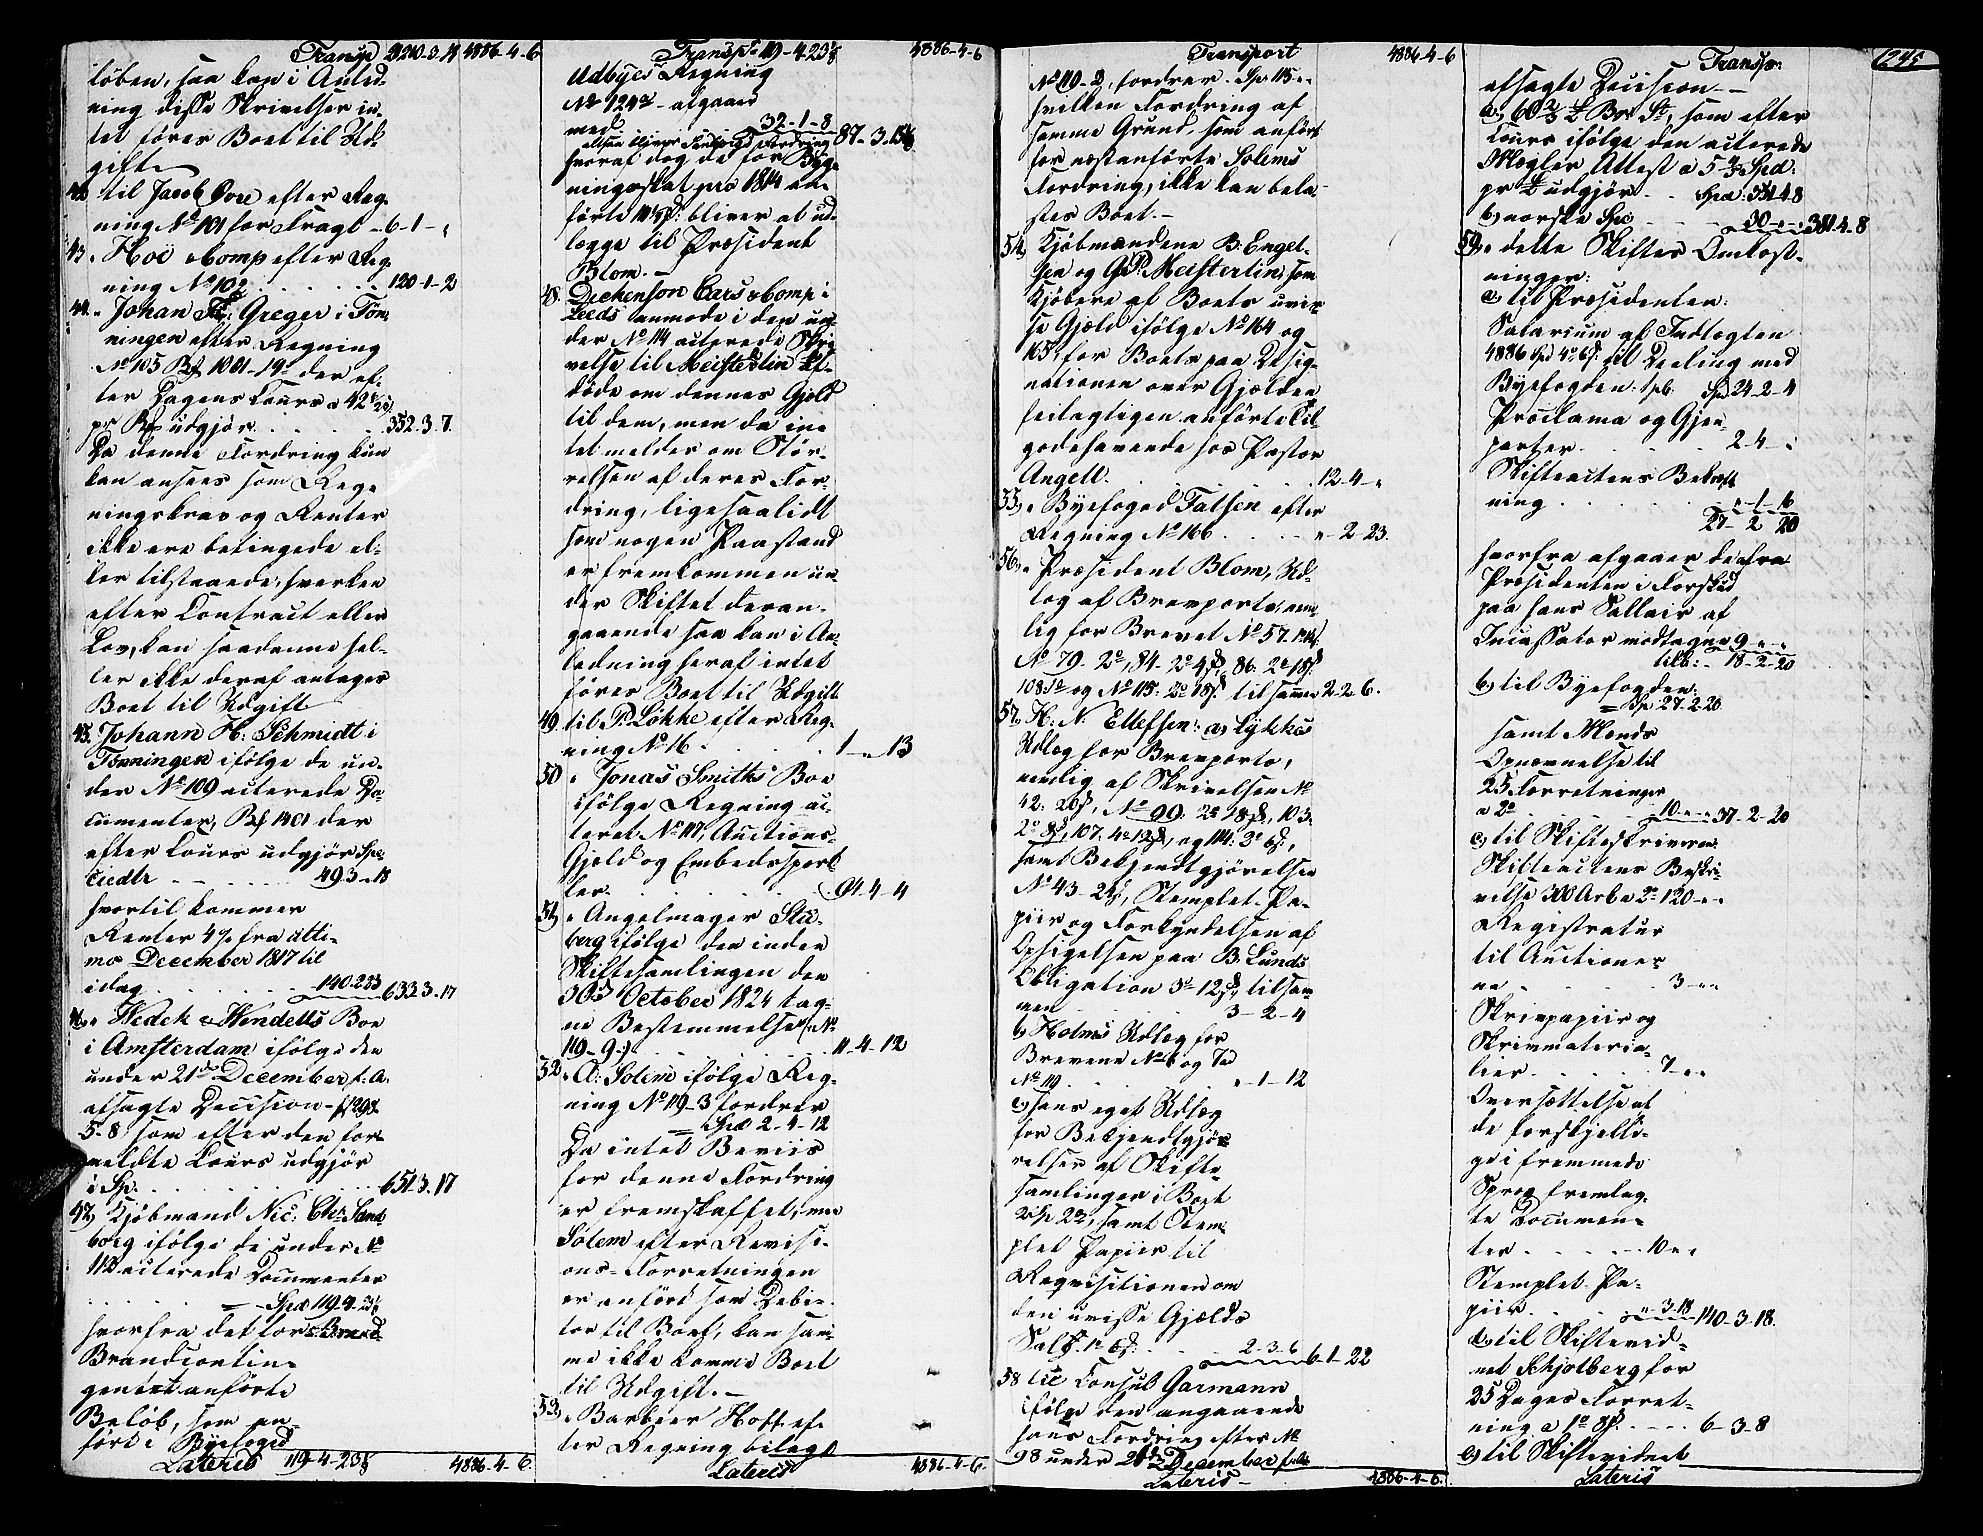 Transp 4886-4-6
löben, saa kan i Anled-
ning disse Skrivelser in-
tet föres Boet til Ud-
gift
42. til Jacob Gore efter Reg-
ning No 101 for Fragt - 6-1-"
43. " Hoë & Comp efter Reg-
ning No 102 . . . . 120-1-2
44. " Johan Fr: Greger i Tön-
ningen efter Regning
No 105 Bz 1001-19 der ef-
ter Dagens Cours a 42
pr Bz udgjør . . . 352-3-7.
Da denne Fordring kun
kan ansees som Reg-
ningskrav og Renter
ikke ere betingede el-
ler tilstaaede, hverken
efter Contract eller
Lov, kan saadanne hel-
ler ikke deraf antages
Boet til Udgift
45. Johann H: Schmidt i
Tönningen ifölge de un-
der No 109 acterede Do-
cumenter, Bz 1401 der
efter Cours udgjör Spe-
ciedlr . . . 493-"-18
hvortil kommer
Renter 4% fra ulti-
mo December 1817 til
idag . . . 140-2-23 633-3-17
46. " Wedek & Wendells Boe
i Amsterdam ifölge den
under 21de December f. A.
afsagte Decision - f 1298-
5-8 som efter den for-
meldte Cours udgjör
i Sp. . . . 651-3-17
47. Kjöbmand Nic: Chr: Sand-
borg ifölge de under No
112 acterede Documenter
. . . = Spd 119-4-23½
hvorfra det for Brand
Brandcontin-
gentet anförte
Belöb, som an-
fört i Byefoged
Lateris 119-4-23½ 4886-4-6.
Transp. 119-4-23½ 4886-4-6
Udbyes Regning
No 124 - afgaaer
med 32-1-8
altsaa bliver Sandborgs Fordring 87-3-15½
hvoraf dog de for Byg-
ningsskat pro 1814 an-
förte bliver at ud-
lægge til Præsident
Blom. -
48. Dickenson Ears & Comp i
Leeds anmode i den un-
der No 114 acterede Skri-
velse til Meisterlin Ef-
döde om dennes Gjeld
til dem, men da in-
tet meldes om Stör-
relsen af deres For-
dring, ligesaalidt
som nogen Paastand
er fremkommen un-
der Skiftet deran-
gaaende saa kan i An-
ledning heraf intet
föres Boet til Udgift
49. til P. Lökke efter Reg-
ning No 16 . . . 1-"-13
50 " Jonas Smiths Boe
ifölge Regning ac-
teret No 117, Auctions-
Gjeld og Embedssport-
ler . . . 94-4-4
51. " Angelmager Sta-
berg ifölge den inden
Skiftesamlingen den
30de October 1824 tag-
ne Bestemmelse (No
119-9.) . . . 11-4-12
52. " O: Solem ifölge Reg-
ning No 119-3 fordrer
= Spd 2-4-12
Da intet Beviis
for denne Fordring
er fremskaffet, men
Solem efter Revisi-
ons-Forretningen
er anfört som Debi-
tor til Boet, kan sam-
me ikke komme Boet
til Udgift. -
53. " Barbeer Hoff ef-
ter Regning bilagt
Lateris 4886-4-6.
Transport 4886-4-6
No 119-2, fordrer . Sp 115-"
hvilken Fordring af
samme Grund, som anfört
for næstanförte Solems
Fordring, ikke kan bela-
stes Boet. -
54. Kjöbmændene B: Engel-
sen og G. P. Meisterlin som
Kjöbere af Boets uvis-
se Gjeld ifölge No 164 og
165, for Boets paa Desig-
nationen over Gjelden
feilagtigen anförte Til-
godehavende hos Pastor
Angell . . . 12-4-"
55. " Byefoged Falsen efter
Regning No 166 . . . "-2-23.
56. " Præsident Blom, Ud-
læg af Brevporto, nem-
lig for Brevet No 57.
No 79. 2, 84-
108 og No 115: tilsammen 2-2-6.
57. H: N: Ellefsen: a) Lykkes
Udlæg for Brevporto,
nemlig af Skrivelsen No
42: No 99: 103:
107. og 114:
samt Bekjendtgjörelsen
No 43-24, Stemplet Pa-
piir og Forkyndelsen af
Opsigelsen paa B. Lunds
Obligation tilsam-
men . . . 3-2-4
b) Holms Udlæg for
Brevene
No 119 . . . "-1-12
c) hans eget Udlæg
for Bekjendtgjö-
relser af Skifte-
samlinger i Boet
samt Stem-
plet Papiir til
Reqvisitionen om
den uvisse Gjelds
Salg . . . 2-3-6 6-1-22
58 til Consul Garmann
ifölge den angaaende
hans Fordring efter No
98 under 21de December f. A.
Lateris - 4886-4-6.
Transp. 1245
afsagte Decision -
a) 60 £ Br. St, som efter
Cours ifölge den acterede
Mægler Attest a Spd:
pr £ udgjör . . Spd: 331-4-8
b) norske Spd . . 50-"-" 381-4-8
59. " dette Skiftes Omkost-
ninger:
a) til Præsidenten:
Salarium af Indtægten
4886 Spd til Deeling med
Byefogden Sp 24-2-4
Proclama og Gjen-
parter . . . 2-4-"
Skifteactens Bekræft-
ning . . . "-1-16
27-2-20
hvorfra afgaaer de fra
Præsidenten i Forskud
paa hans Sallair af
Incassator modtagne 9-"-"
tilb: 18-2-20
b) til Byefogden:
= Sp 27-2-20
samt Mænds
Opnævnelse til
25 Forretninger
. . 10-"-" 37-2-20
c) til Skifteskriveren
Skifteactens Beskri-
velse 300 Ark 120-"-"
Registratur
til Auctioner-
ne . . . 3-"-"
Skrivpapiir og
Skrivmateria-
lier . . . 7-"-"
Oversættelse af
de forskjelli-
ge i fremmede
Sprog fremlag-
te Documen-
ter . . . 10-"-"
Stemplet Pa-
piir . . . "-3-18 140-3-18.
d) til Skiftevid-
net Schjolberg for
25 Dages Forret-
ning . . . 6-3-8
e) til Skiftevidnet
Lateris